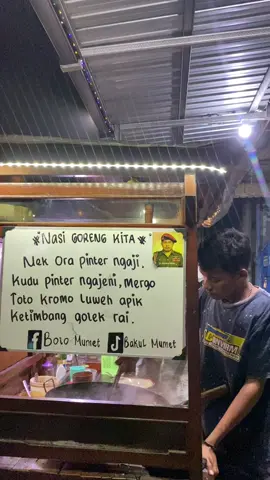 *NASI GORENG KITA*
Nek Ora pinter ngaji.
Kudu pinter ngajeni, Mergo
Toto kromo luweh apik
Ketimbang golek rai.
Bolo Mumet Bakul Mumet